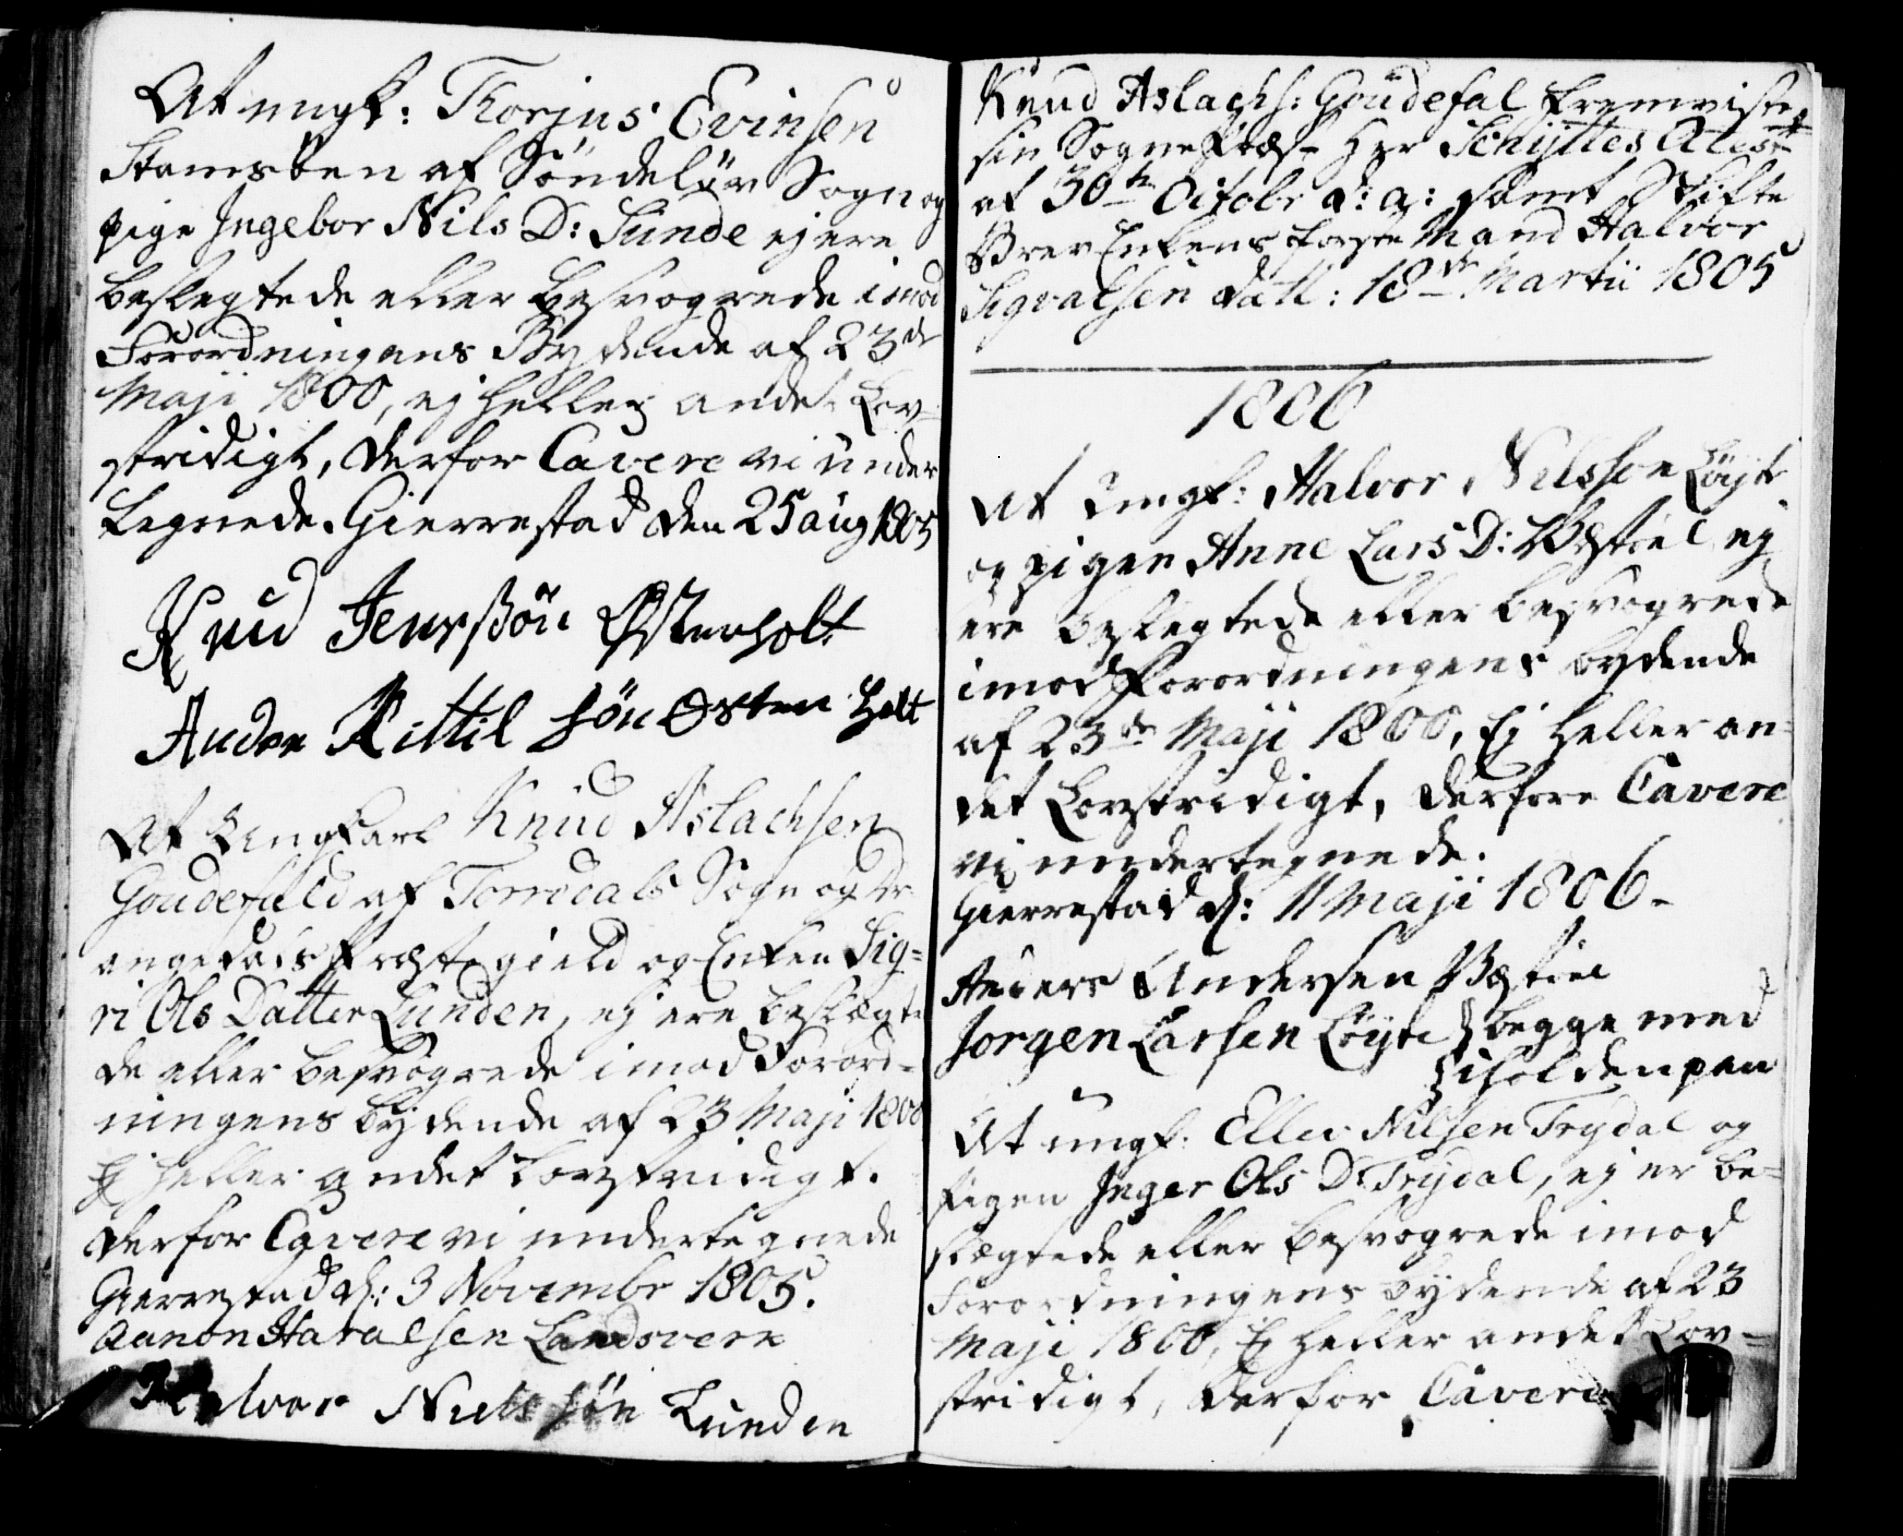 At ungk: Thorjus Evinsen
Stamsöen af Söndeløv Sogn og
pige Ingebor Nils D: Sunde ej ere
beslegtede eller besvogrede imod
Forordningens Bydende af 23de
Maji 1800, ej heller andet Lov-
stridigt, derfor Cavere vi under
tegnede. Gierrestad den 25 aug 1805
Knud Jensßön Østenholt
Anders Kittil sön Østen Holt
At Ungkarl Knud Aslachsen
Goudefald af Torridals Sogn og Dr
angedals Præstegield og Enken Sig-
ri Ols Datter Lunden, ej ere beslægte
de eller besvogrede imod Forord-
ningens bydende af 23 Maji 1800
Ej heller andet Lovstridigt.
derfor Cavere vi undertegnede
Gierrestad d: 3 Novembr 1805.
Aanon Haralsen Landsverk
Halvor Nielssön Lunden
Knud Aslachs: Goudefal fremviste
sin Sognepræst Hr Schyttes Atest
af 30te Octobr d: a: samt Skifte
Brev Enkens første Mand Halvor
Sigvalsen datt: 18de Martii 1805
1806
At Ungk: Halvor Nilsson Løyte
og pigen Anne Lars D: Vestøel ej
ere beslegtede eller besvogrede
imod Forordningens bydende
af 23de Maji 1800, Ej heller an-
det Lovstridigt, derfore Cavere
vi undertegnede.
Gierrestad d: 11 Maji 1806-
Anders Andersen Vestøel
Jorgen Larsen Løyte begge med
iholden pen
At ungk: Ellev Nilsen Trydal og
Pigen Inger Ols D Trydal, ej er be-
slægtede eller besvogrede imod
Forordningens bydende af 23
Maji 1800, Ej heller andet Lov-
stridigt, derfor Cavere